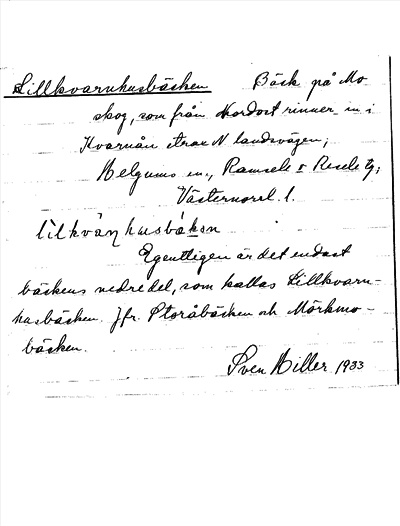 Lillkvarnhusbäcken Bäck på Mo
skog, som från Nordost rinner in i
Kvarnån strax N landsvägen;
Helgums sn., Ramsele o Resele tg;
Västernorrl. l.
lìlkvàɳhusbákən
Egentligen är det endast
bäckens nedre del, som kallas Lillkvarn-
husbäcken. Jfr. Storåbäcken och Mörkmo-
bäcken.
Sven Hiller 1933